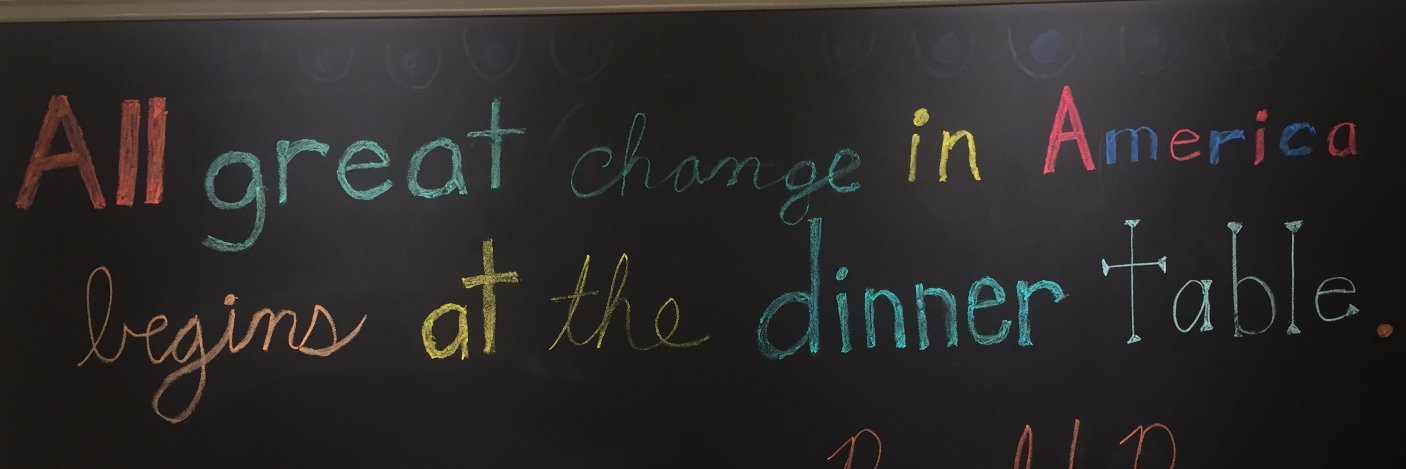 All great change in America
begins at the dinner table.